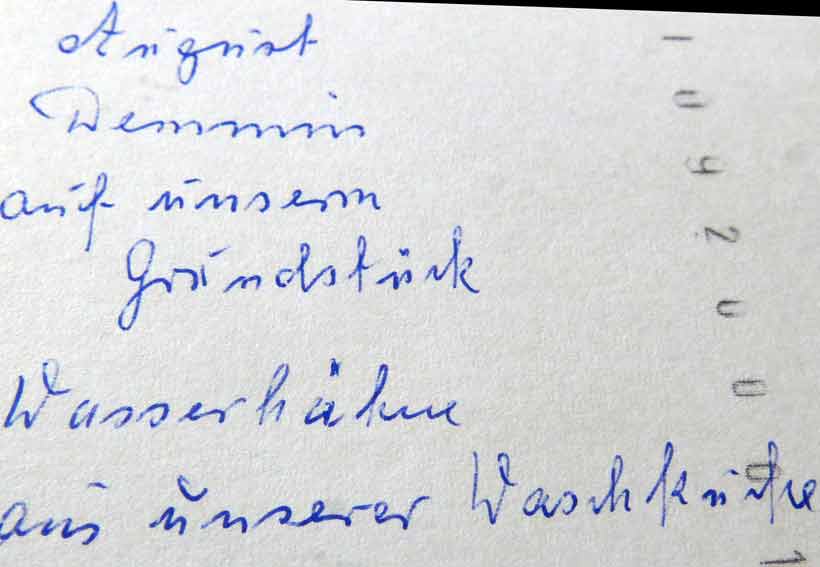 August
Demmin
auf unserm
Grundstück
Wasserhähne
aus unserer Waschküche
1 0 9 2 0 0 0 1